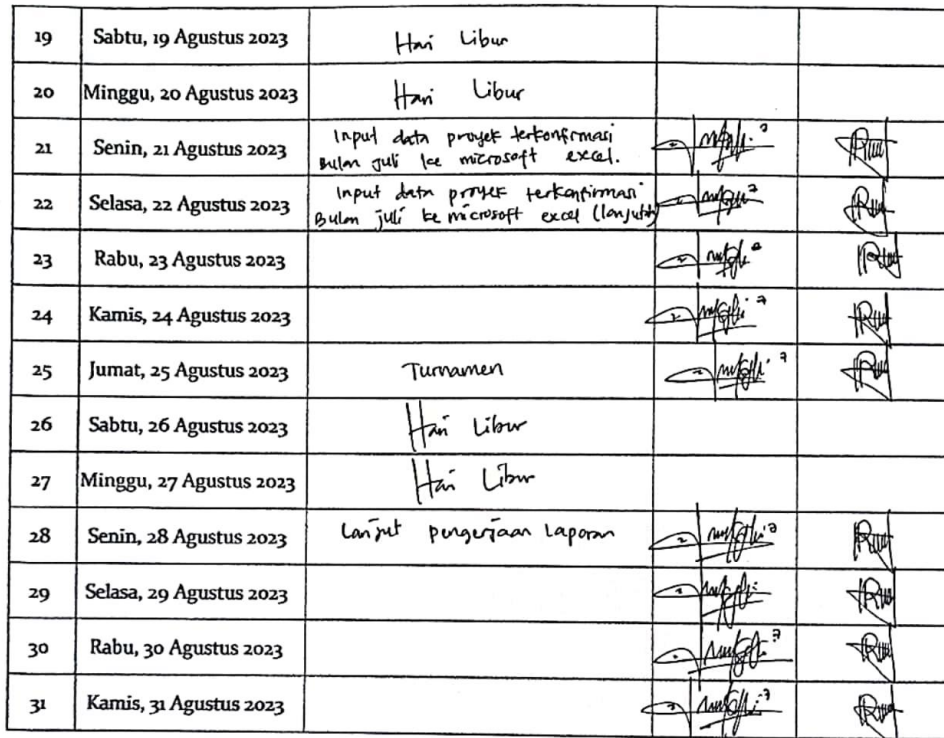 19 Sabtu, 19 Agustus 2023 Hari Libur
20 Minggu, 20 Agustus 2023 Hari Libur
21 Senin, 21 Agustus 2023 Input data proyek terkonfirmasi
Bulan juli ke microsoft excel.
22 Selasa, 22 Agustus 2023 Input data proyek terkonfirmasi
Bulan juli ke microsoft excel (lanjutan)
23 Rabu, 23 Agustus 2023
24 Kamis, 24 Agustus 2023
25 Jumat, 25 Agustus 2023 Turnamen
26 Sabtu, 26 Agustus 2023 Hari Libur
27 Minggu, 27 Agustus 2023 Hari Libur
28 Senin, 28 Agustus 2023 Lanjut pengerjaan Laporan
29 Selasa, 29 Agustus 2023
30 Rabu, 30 Agustus 2023
31 Kamis, 31 Agustus 2023